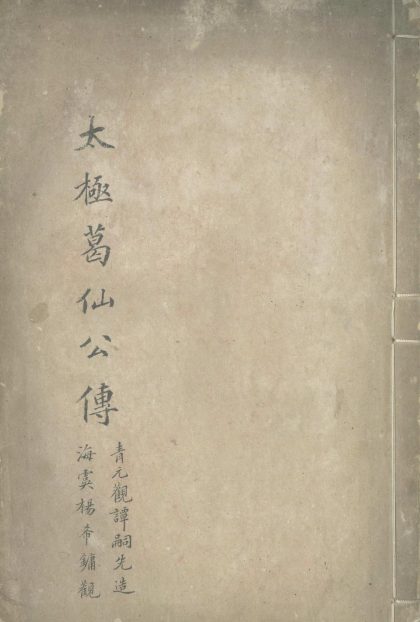 太極葛仙公傳
青元觀譚嗣先造
海虞楊希鏞觀